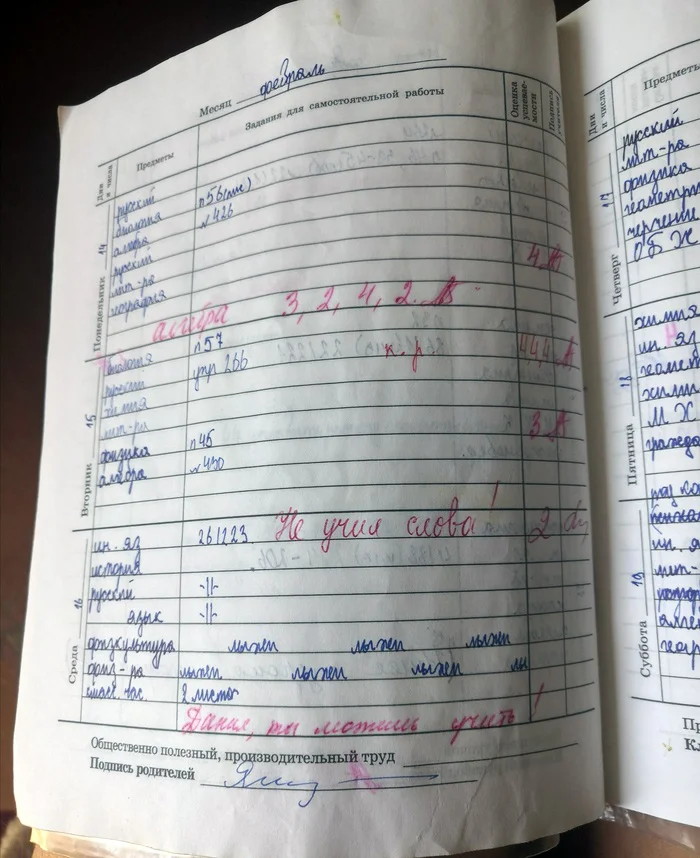 Месяц февраль
Дни и числа Предметы Задания для самостоятельной работы Оценка успеваемости Подпись учителя
Понедельник 14
русский
биология п 56
алгебра № 426
русский
лит-ра 4
география
алгебра 3, 2, 4, 2
Вторник 15
биология п 57
русский упр 266 к.р 444
химия
лит-ра 3
физика п 46
алгебра № 430
Среда 16
ин. яз 261223 Не учил слова! 2
история
русский -||-
язык -||-
физкультура лыжи лыжи лыжи
физ-ра лыжи лыжи лыжи лы
класс. час
Данил, ты можешь учить!
Общественно полезный, производительный труд
Подпись родителей
Дни и числа Предметы
Четверг 17
русский
лит-ра
физика
геометри
черчение
ОБЖ
Пятница 18
химия
ин. яз
геомет
хими
МХ
гражда
Суббота 19
ин. я
лит-
алге
геогр
Пр
Кл